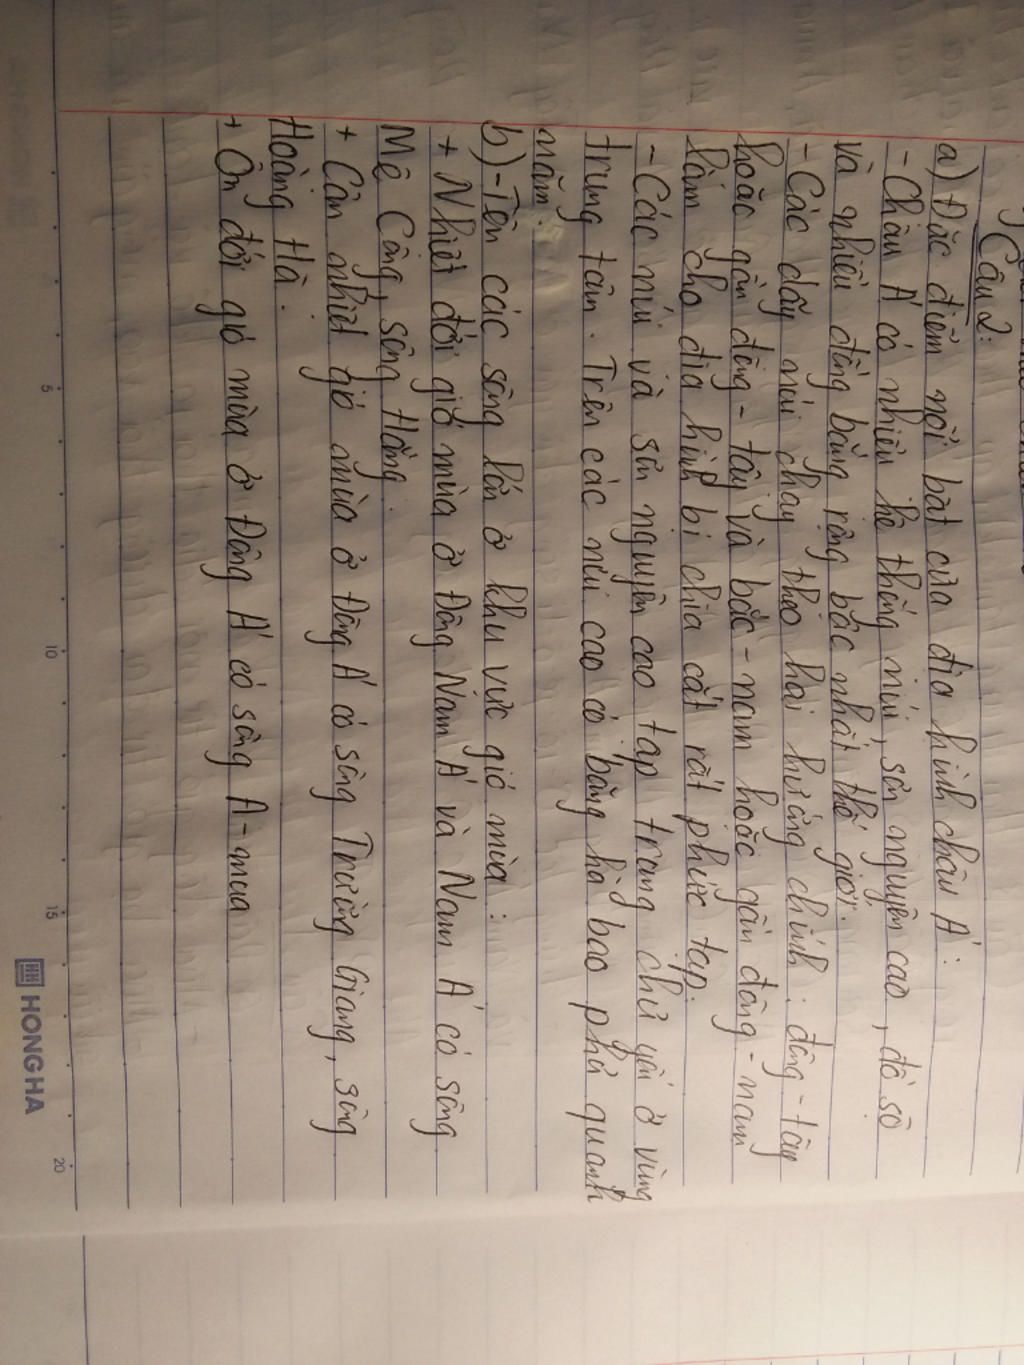 Câu 2:
a) Đặc điểm nổi bật của địa hình châu Á:
- Châu Á có nhiều hệ thống núi, sơn nguyên cao, đồ sộ
và nhiều đồng bằng rộng bậc nhất thế giới.
- Các dãy núi chạy theo hai hướng chính: đông - tây
hoặc gần đông - tây và bắc - nam hoặc gần đông - nam
làm cho địa hình bị chia cắt rất phức tạp.
- Các núi và sơn nguyên cao tập trung chủ yếu ở vùng
trung tâm. Trên các núi cao có băng hà bao phủ quanh
năm.
b) - Tên các sông lớn ở khu vực gió mùa:
+ Nhiệt đới gió mùa ở Đông Nam Á và Nam Á có sông
Mê Công, sông Hồng.
+ Cận nhiệt gió mùa ở Đông Á có sông Trường Giang, sông
Hoàng Hà.
+ Ôn đới gió mùa ở Đông Á có sông A-mua
5 10 15 20
HONG HA